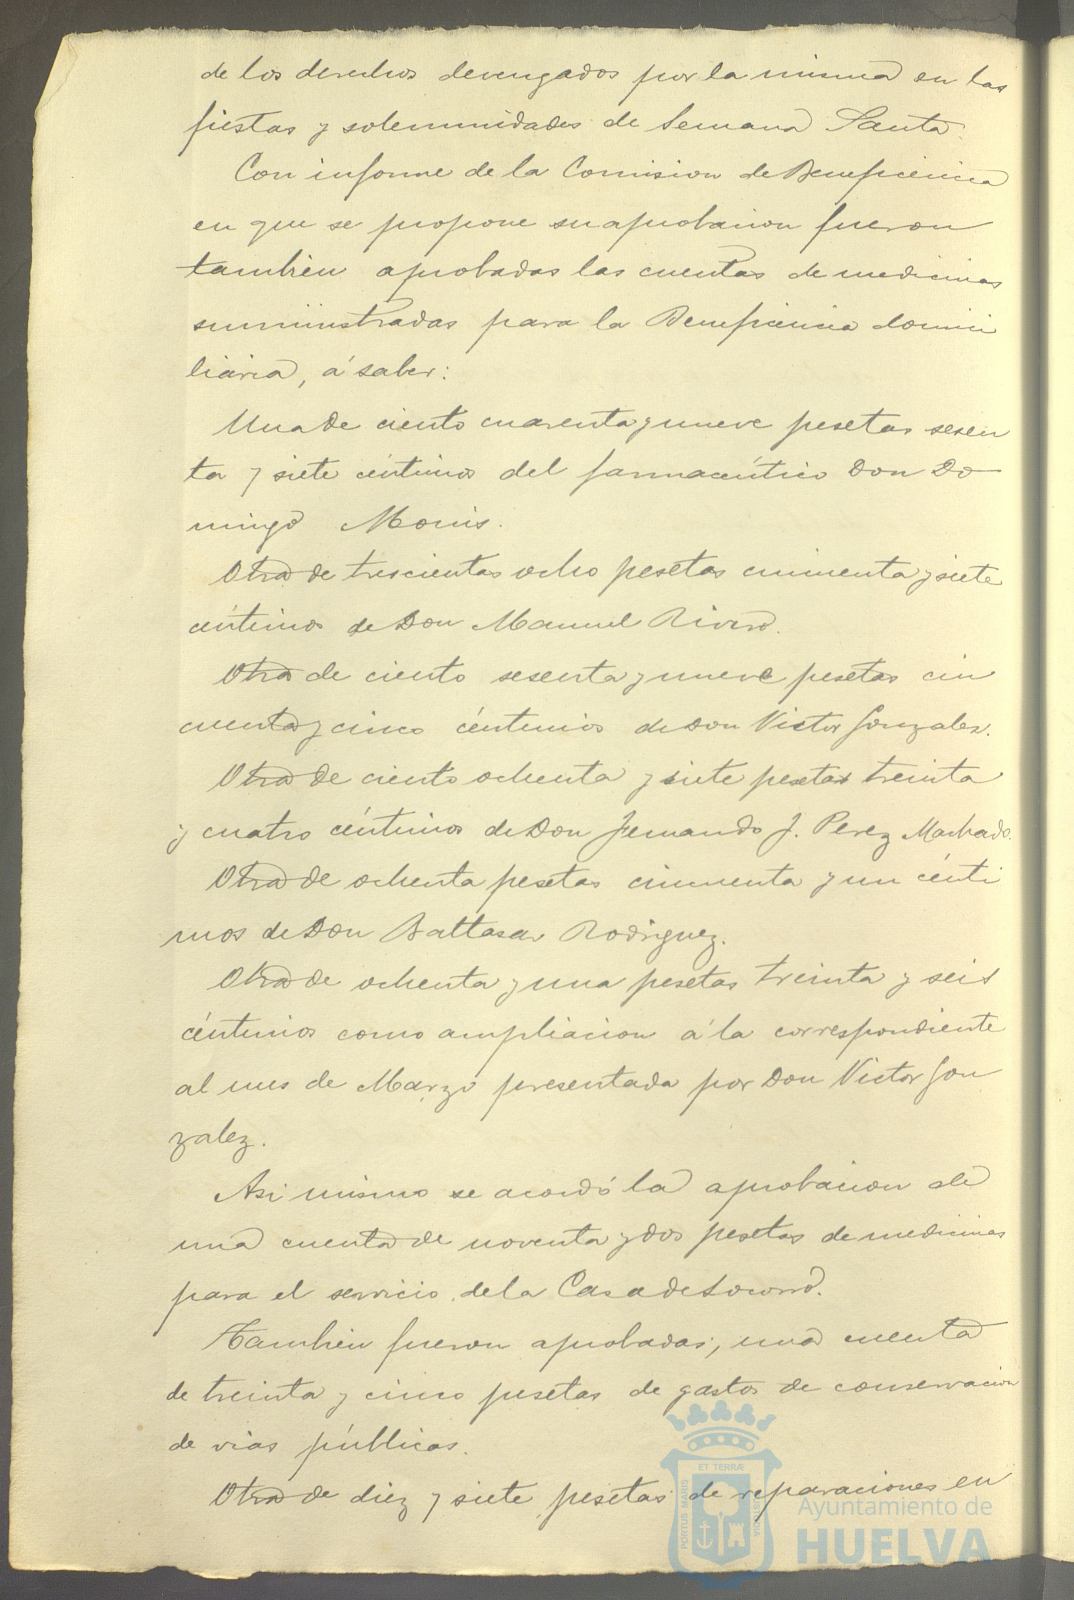 de los derechos devengados por la misma en las
fiestas y solemnidades de Semana Santa.
Con informe de la Comision de Beneficencia
en que se propone su aprobacion fueron
tambien aprobadas las cuentas de medicinas
suministradas para la Beneficencia domici
liaria, á saber:
Una de ciento cuarenta y nueve pesetas sesen
ta y siete céntimos del farmacéutico Don Do-
mingo Monis.
Otra de trescientas ocho pesetas cincuenta y siete
céntimos de Don Manuel Rivero.
Otra de ciento sesenta y nueve pesetas cin
cuenta y cinco céntimos de Don Victor Gonzalez.
Otra de ciento ochenta y siete pesetas treinta
y cuatro céntimos de Don Fernando J. Perez Machado.
Otra de ochenta pesetas cincuenta y un cénti
mos de Don Baltasar Rodriguez.
Otra de ochenta y una pesetas treinta y seis
céntimos como ampliacion á la correspondiente
al mes de Marzo presentada por Don Victor Gon
zalez.
Asi mismo se acordó la aprobacion de
una cuenta de noventa y dos pesetas de medicinas
para el servicio de la Casa de Socorro.
Tambien fueron aprobadas, una cuenta
de treinta y cinco pesetas de gastos de conservacion
de vias públicas.
Otra de diez y siete pesetas de reparaciones en
ET TERRÆ
PORTUS MARIS
CUSTODIA
Ayuntamiento de
HUELVA